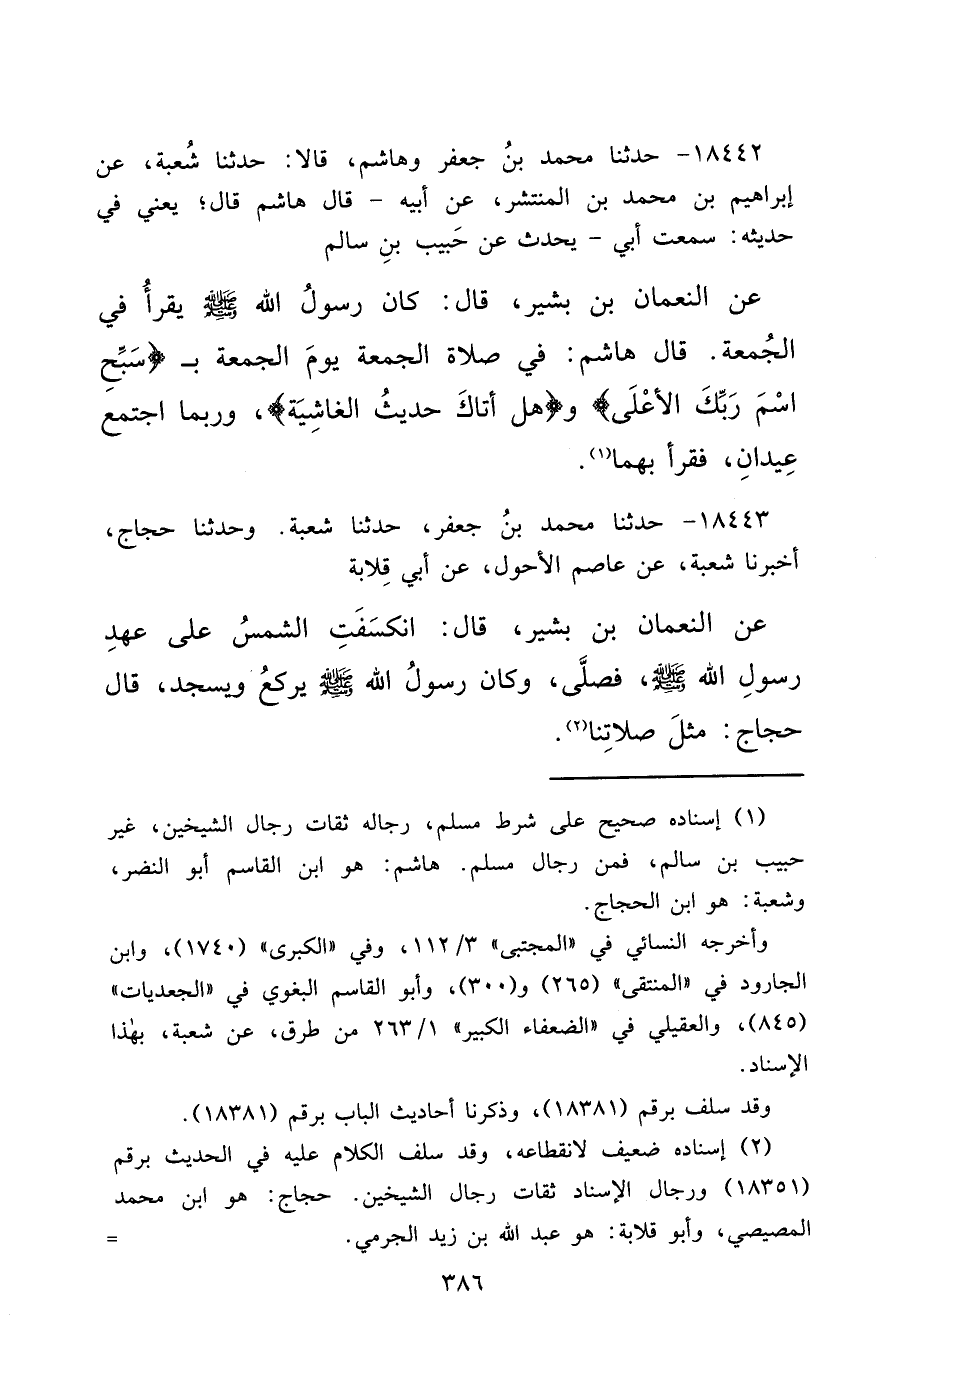 ١٨٤٤٢- حدثنا محمد بنُ جعفر وهاشم، قالا: حدثنا شُعبة، عن
إبراهيم بن محمد بن المنتشر، عن أبيه - قال هاشم قال؛ يعني في
حديثه: سمعت أبي - يحدث عن حَبيب بنِ سالم
عن النعمان بن بشير، قال: كان رسولُ الله ﷺ يقرأُ في
الجُمعة. قال هاشم: في صلاة الجمعة يومَ الجمعة بـ ﴿سَبِّحِ
اسْمَ رَبِّكَ الأعْلَى﴾ و﴿هل أتاكَ حديثُ الغاشِيَة﴾، وربما اجتمع
عِيدانِ، فقرأ بهما(١).
١٨٤٤٣- حدثنا محمد بنُ جعفر، حدثنا شعبة. وحدثنا حجاج،
أخبرنا شعبة، عن عاصم الأحول، عن أبي قِلابة
عن النعمان بن بشير، قال: انكسَفَتِ الشمسُ على عهدِ
رسولِ الله ﷺ، فصلَّى، وكان رسولُ الله ﷺ يركعُ ويسجد، قال
حجاج: مثلَ صلاتِنا(٢).
(١) إسناده صحيح على شرط مسلم، رجاله ثقات رجال الشيخين، غير
حبيب بن سالم، فمن رجال مسلم. هاشم: هو ابن القاسم أبو النضر،
وشعبة: هو ابن الحجاج.
وأخرجه النسائي في «المجتبى» ٣/ ١١٢، وفي «الكبرى» (١٧٤٠)، وابن
الجارود في «المنتقى» (٢٦٥) و(٣٠٠)، وأبو القاسم البغوي في «الجعديات»
(٨٤٥)، والعقيلي في «الضعفاء الكبير» ١/ ٢٦٣ من طرق، عن شعبة، بهٰذا
الإسناد.
وقد سلف برقم (١٨٣٨١)، وذكرنا أحاديث الباب برقم (١٨٣٨١).
(٢) إسناده ضعيف لانقطاعه، وقد سلف الكلام عليه في الحديث برقم
(١٨٣٥١) ورجال الإسناد ثقات رجال الشيخين. حجاج: هو ابن محمد
المصيصي، وأبو قلابة: هو عبد الله بن زيد الجرمي. =
٣٨٦